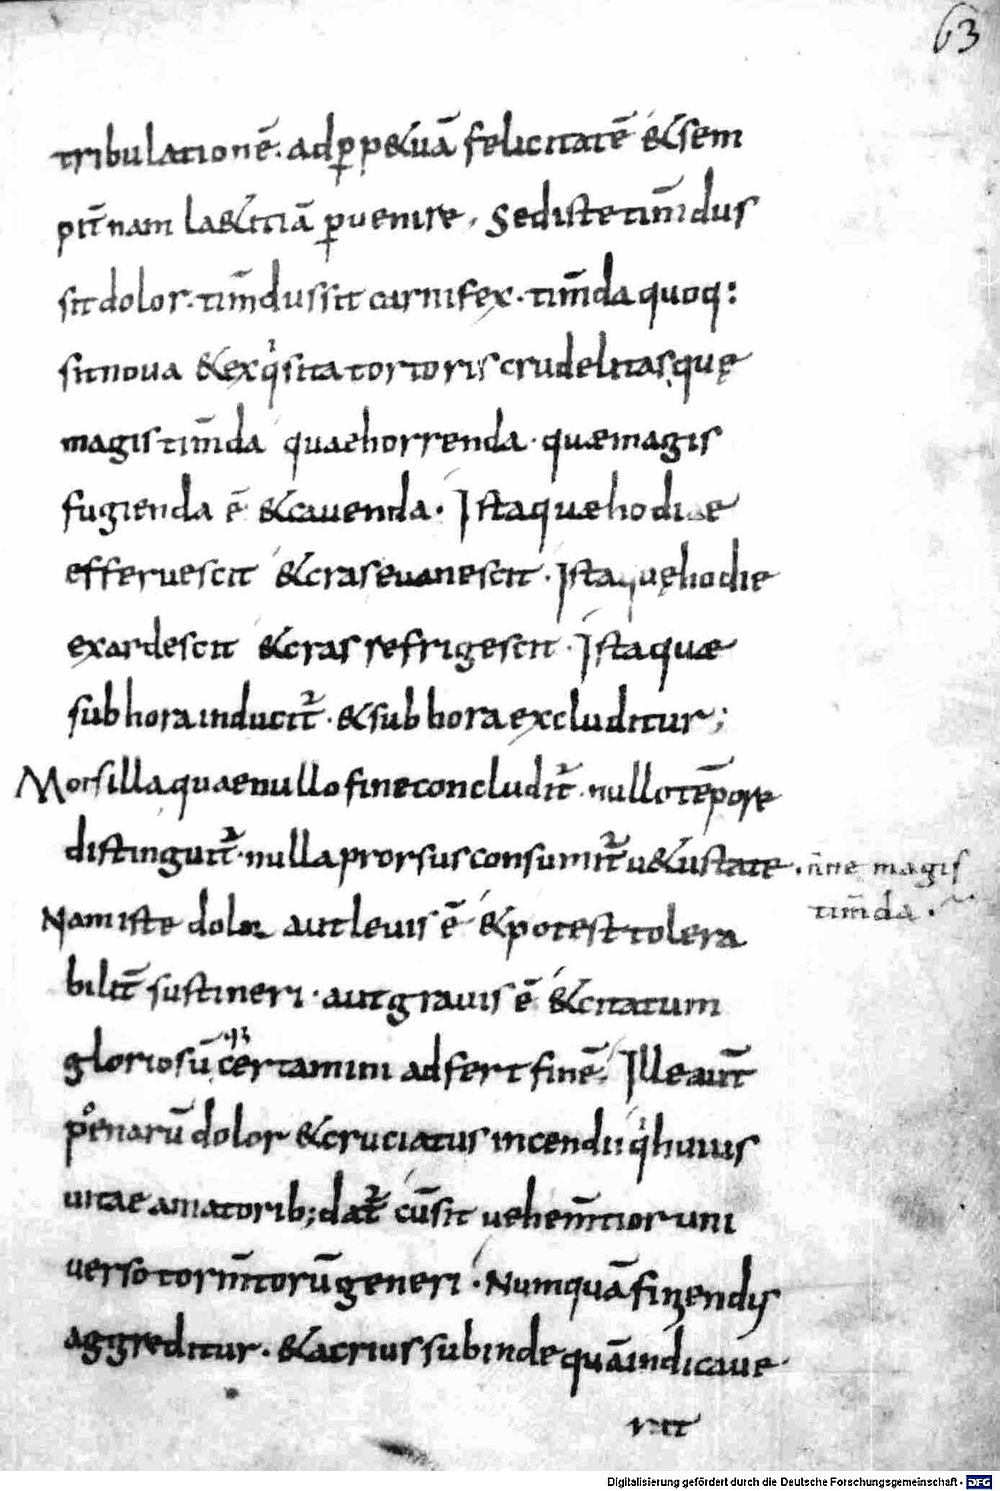 63
tribulationē. ad p̲p&uā felicitatē &sem
pit̄nam la&itiā p̲uenire, Sed iste tim̄dus
sit dolor. tim̄dus sit carnifex. tim̄da quoq:
sit nova &exqͥsita tortoris crudelitas, quę
magis tim̄da quaehorrenda. quae magis
fugienda ē &cauenda. Ista quae hodiae
efferuescit &cras euanescit. Ista quę hodie
exardescit &cras refrigescit. Ista quae
sub hora inducit᷑. &sub hora excluditur;
Mors illa quae nullo fine concludit᷑. nullo tēpore
distinguit᷑. nulla prorsus consumit᷑ u&ustate. n̄ne magis
tim̄da.
Nam iste dolor aut leuis ē &potest tolera
bilit̄ sustineri. aut grauis ē &citatum
gloriosū certamini adfert finē. Ille aut̄
poenarū dolor &cruciatus incendii qͥ huius
uitae amatorib; dat᷑ cū sit uehem̄tior uni
verso torm̄torū generi. Numquā fingendis
aggreditur. &acrius subinde quā indicaue
rit
Digitalisierung gefördert durch die Deutsche Forschungsgemeinschaft - DFG